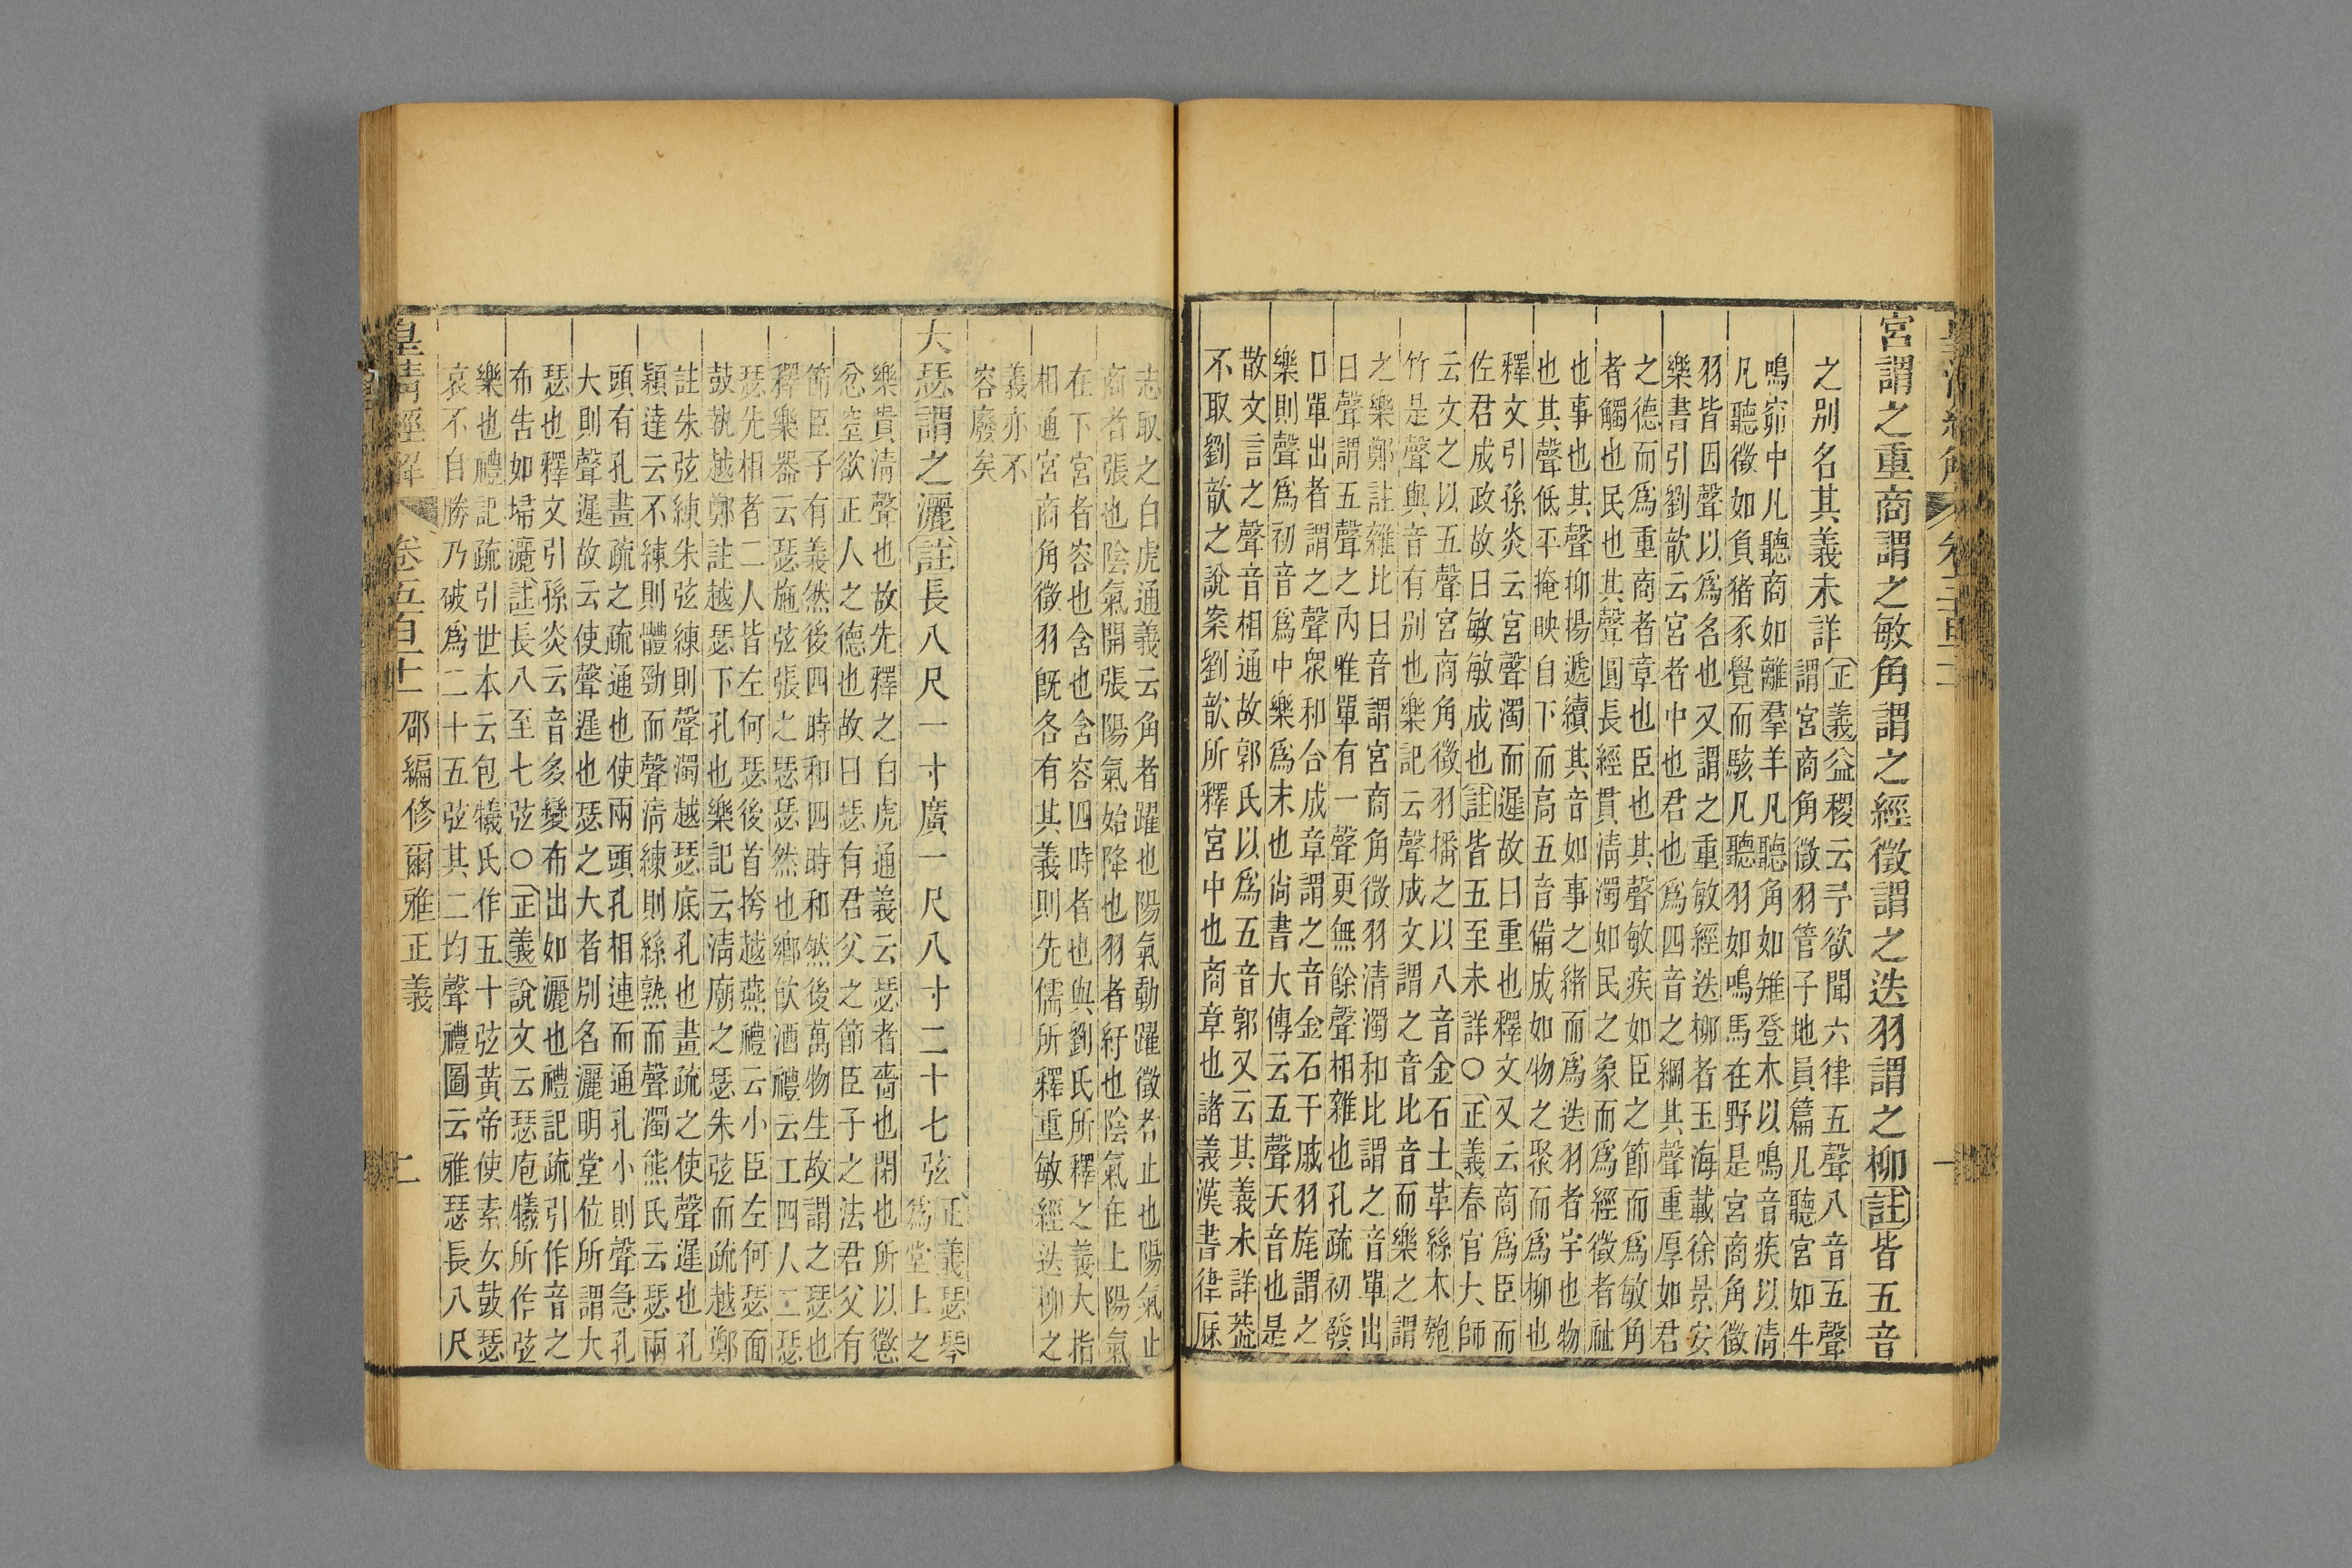 宮謂之重商謂之敏角謂之經徵謂之迭羽謂之柳註皆五音
之別名其義未詳
正義益稷云予欲聞六律五聲八音五聲
謂宮商角徵羽管子地員篇凡聽宮如牛
鳴窌中凡聽商如離羣羊凡聽角如雉登木以鳴音疾以清
凡聽徵如負豬豕覺而駭凡聽羽如鳴馬在野是宮商角徵
羽皆因聲以爲名也又謂之重敏經迭柳者玉海載徐景安
樂書引劉歆云宮者中也君也爲四音之綱其聲重厚如君
之德而爲重商者章也臣也其聲敏疾如臣之節而爲敏角
者觸也民也其聲圓長經貫清濁如民之象而爲經徵者祉
也事也其聲抑揚遞續其音如事之緒而爲迭羽者宇也物
也其聲低平掩映自下而高五音備成如物之聚而爲柳也
釋文引孫炎云宮聲濁而遲故曰重也釋文又云商爲臣而
佐君成政故曰敏敏成也註皆五至未詳○正義春官大師
云文之以五聲宮商角徵羽播之以八音金石土革絲木匏
竹是聲與音有別也樂記云聲成文謂之音比音而樂之謂
之樂鄭註雜比曰音謂宮商角徵羽清濁和比謂之音單出
曰聲謂五聲之內唯單有一聲更無餘聲相雜也孔疏初發
口單出者謂之聲眾和合成章謂之音金石干戚羽旄謂之
樂則聲爲初音爲中樂爲末也尚書大傳云五聲天音也是
散文言之聲音相通故郭氏以爲五音郭又云其義未詳葢
不取劉歆之說案劉歆所釋宮中也商章也諸義漢書律厤
志取之白虎通義云角者躍也陽氣動躍徵者止也陽氣止
商者張也陰氣開張陽氣始降也羽者紆也陰氣在上陽氣
在下宮者容也含也含容四時者也與劉氏所釋之義大指
相通宮商角徵羽既各有其義則先儒所釋重敏經迭柳之
義亦不
容廢矣
大瑟謂之灑註長八尺一寸廣一尺八寸二十七弦
正義瑟琴
爲堂上之
樂貴清聲也故先釋之白虎通義云瑟者嗇也閑也所以懲
忿窒欲正人之德也故曰瑟有君父之節臣子之法君父有
節臣子有義然後四時和四時和然後萬物生故謂之瑟也
釋樂器云瑟施弦張之瑟瑟然也鄉飲酒禮云工四人二瑟
瑟先相者二人皆左何瑟後首挎越燕禮云小臣左何瑟面
鼓執越鄭註越瑟下孔也樂記云清廟之瑟朱弦而疏越鄭
註朱弦練朱弦練則聲濁越瑟底孔也畫疏之使聲遲也孔
穎達云不練則體勁而聲清練則絲熟而聲濁熊氏云瑟兩
頭有孔畫疏之疏通也使兩頭孔相連而通孔小則聲急孔
大則聲遲故云使聲遲也瑟之大者別名灑明堂位所謂大
瑟也釋文引孫炎云音多變布出如灑也禮記疏引作音之
布告如埽灑註長八至七弦○正義說文云瑟庖犧所作弦
樂也禮記疏引世本云包犧氏作五十弦黃帝使素女鼓瑟
哀不自勝乃破爲二十五弦其二均聲禮圖云雅瑟長八尺
皇清經解 卷五百十一 邵編修爾雅正義 二